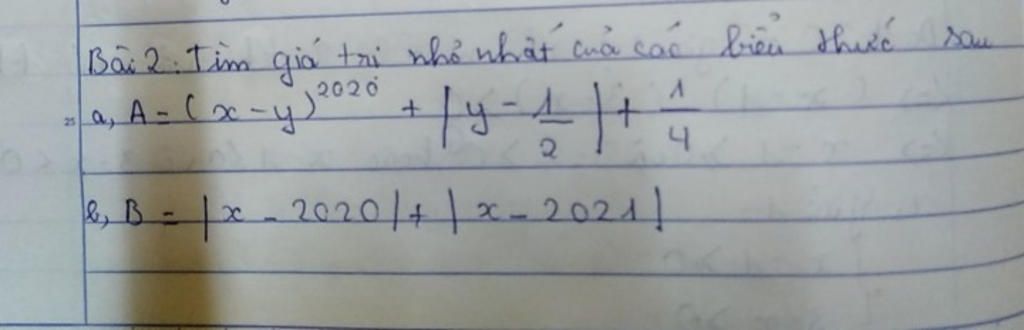 Bài 2: Tìm giá trị nhỏ nhất của các biểu thức sau
a, A = (x - y)^2020 + |y - 1/2| + 1/4
b, B = |x - 2020| + |x - 2021|